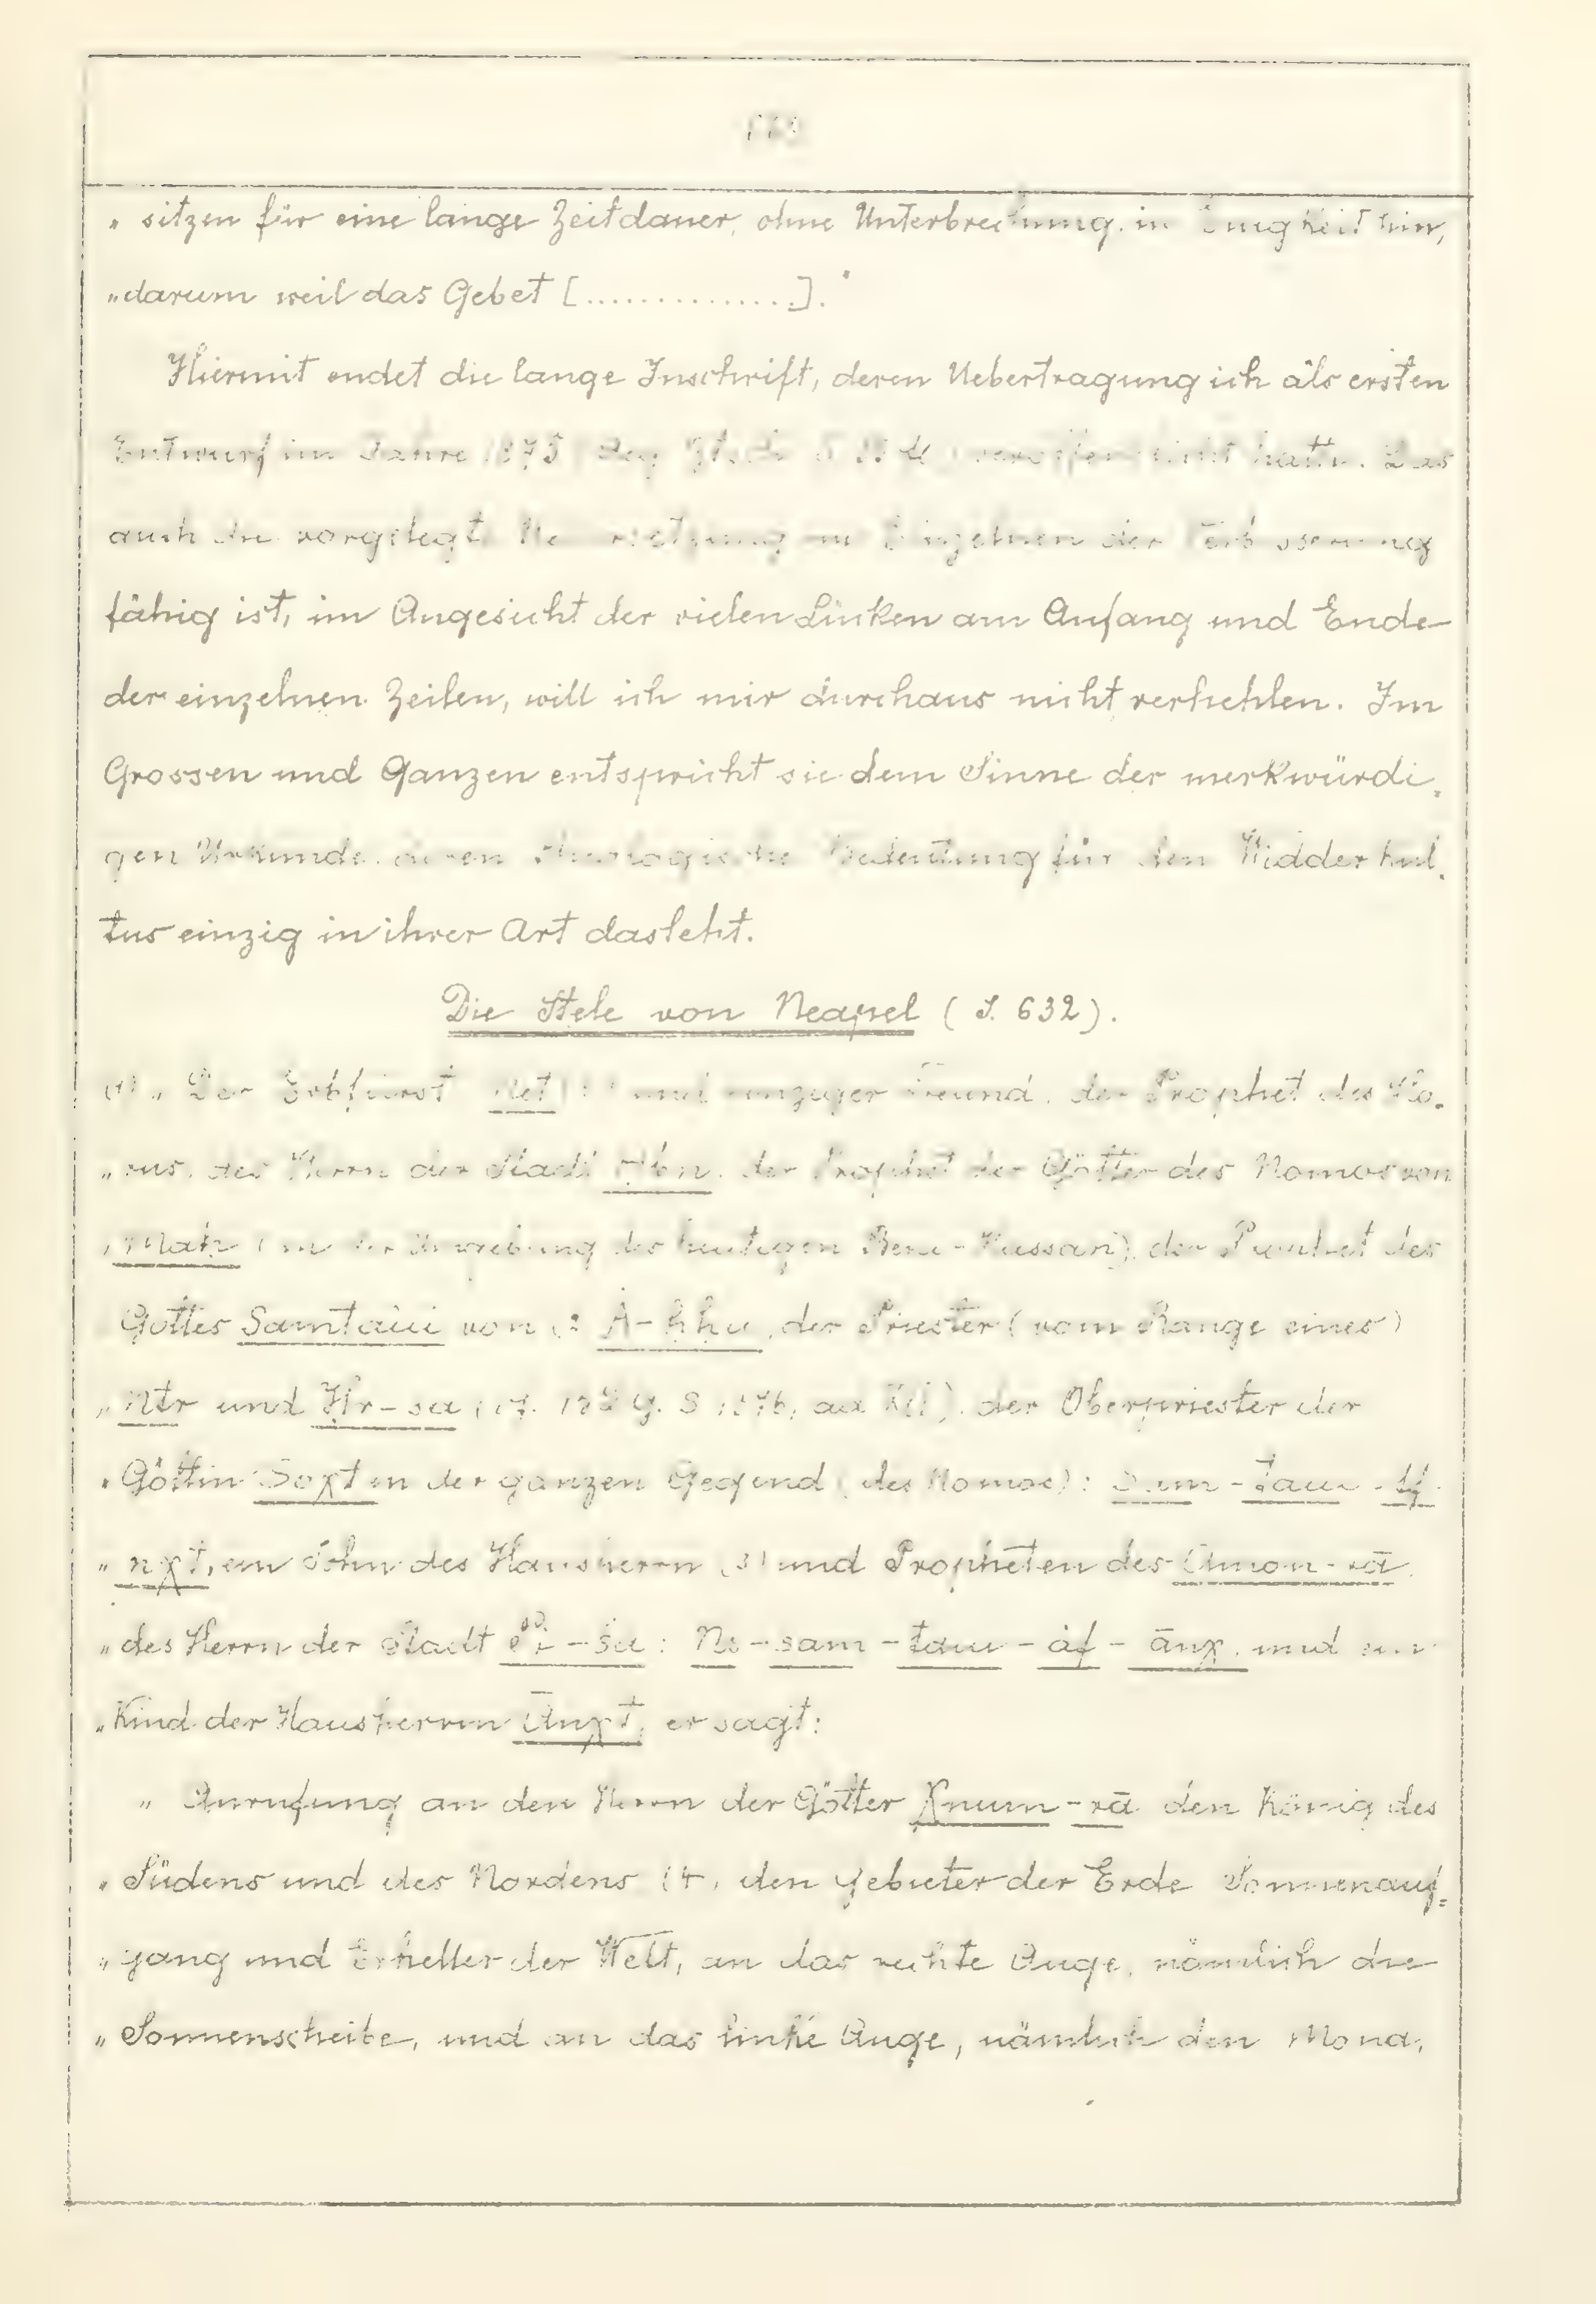 „ sitzen für eine lange Zeitdauer, ohne Unterbrechung, in Ewigkeit hin,
„ darum weil das Gebet [...............]."
Hiermit endet die lange Inschrift, deren Uebertragung ich als ersten
Entwurf im Jahre 1875 veröffentlicht hatte. Das
auch die vorgelegte im Einzelnen der Verbesserung
fähig ist, im Angesicht der vielen Lücken am Anfang und Ende
der einzelnen Zeilen, will ich mir durchaus nicht verhehlen. Im
Grossen und Ganzen entspricht sie dem Sinne der merkwürdi-
gen Urkunde, deren theologische Bedeutung für den Widderkul-
tus einzig in ihrer Art dasteht.
Die Stele von Neapel (S. 632).
(1) „ Der Erbfürst und einziger Freund, der Prophet des Ho-
„ rus, des Herrn der Stadt Hbn, der Prophet der Götter des Nomos von
„ Mah (in der Umgebung des heutigen Beni-Hassan), der Prophet des
Gottes Samtaui von (2) der Priester (vom Range eines)
„ Ntr und Hr-sa der Oberpriester der
„ Göttin Soχt in der ganzen Gegend (des Nomos): Sam-taui-tf-
„ nχt, ein Sohn des Hausherrn (3) und Propheten des Amon-rā
„ des Herrn der Stadt : Ns-sam-taui-àf-ānχ, und ein
„ Kind der Hausherrin Ānχt, er sagt:
„ Anrufung an den Herrn der Götter Χnum-rā den König des
„ Südens und des Nordens (4) den Gebieter der Erde Sonnenauf-
„ gang und Erheller der Welt, an das rechte Auge, nämlich die
„ Sonnenscheibe, und an das linke Auge, nämlich den Mond,